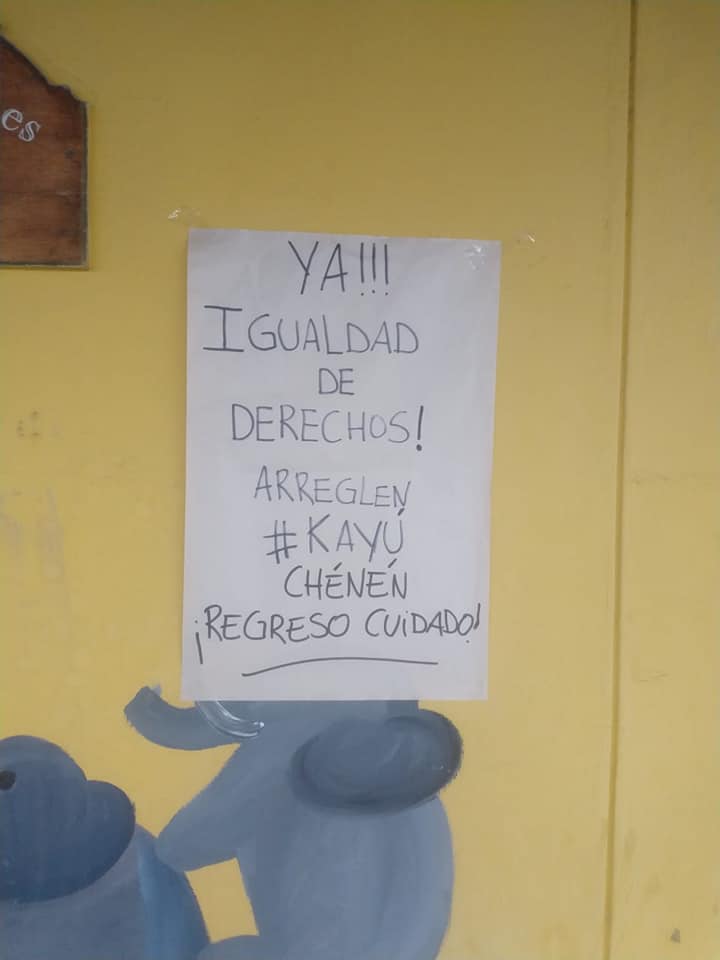 es
YA!!!
IGUALDAD
DE
DERECHOS!
ARREGLEN
#KAYÚ
CHÉNÉN
¡REGRESO CUIDADO!